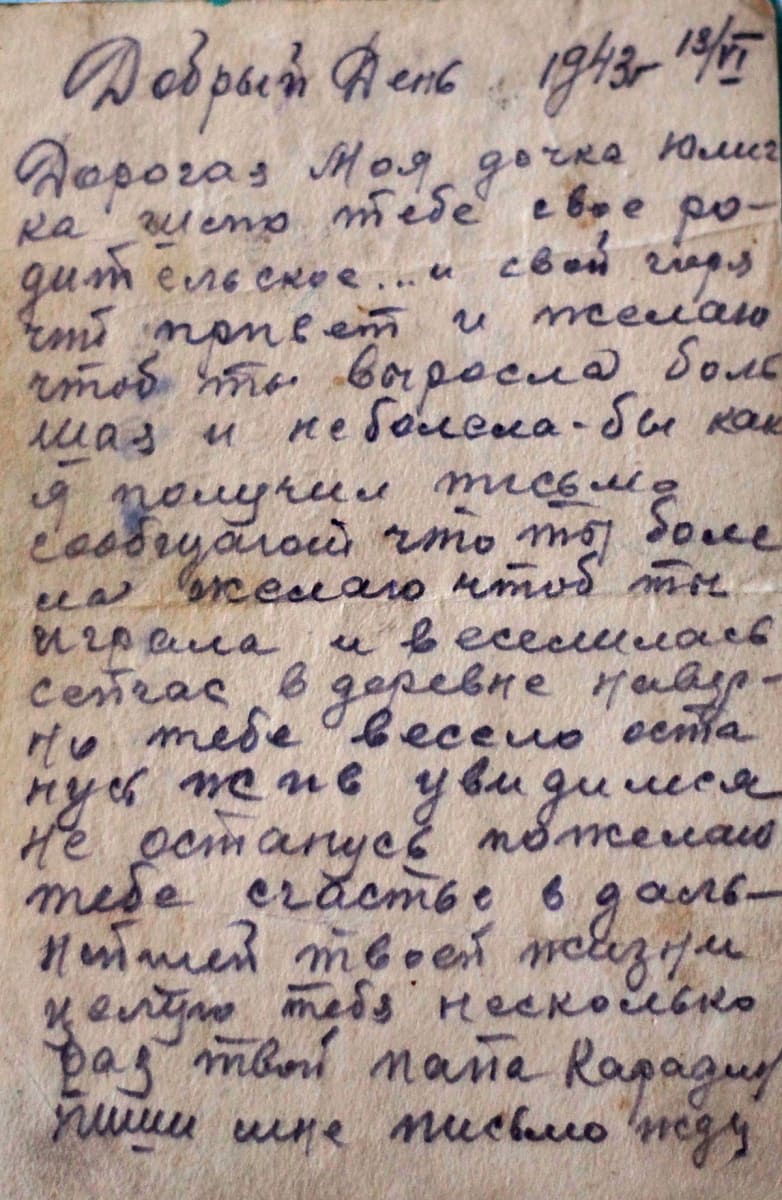 Добрый День 1943г 13/VI
Дорогая Моя дочка Юлич
ка шлю тебе свое ро-
дительское... и свой горя
чий привет и желаю
чтоб ты выросла боль
шая и неболела-бы как
я получил письмо
сообщают что ты боле
ла желаю чтоб ты
играла и веселилась
сейчас в деревне навер-
но тебе весело оста
нусь жив увидимся
не останусь пожелаю
тебе счастье в даль-
нейшей твоей жизни
целую тебя несколько
раз твой папа
пиши мне письмо жду